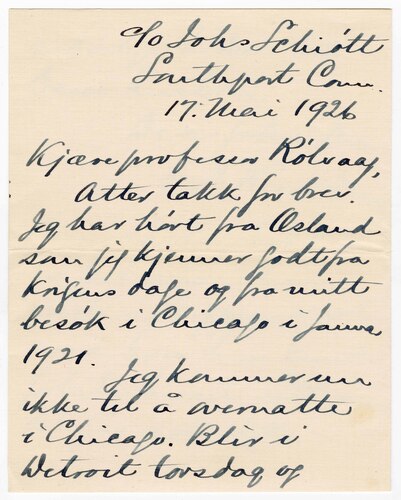 c/o Johs Schiött
Southport Conn.
17. Mai 1926
Kjære professor Rölvaag,
Atter takk for brev.
Jeg har hört fra Osland
som jeg kjenner godt fra
krigens dage og fra mitt
besök i Chicago i Januar
1921.
Jeg kommer nu
ikke til å overnatte
i Chicago. Blir i
Detroit torsdag og